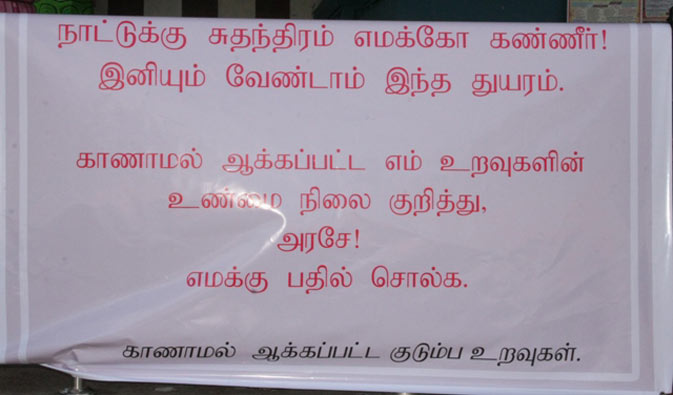 நாட்டுக்கு சுதந்திரம் எமக்கோ கண்ணீர்!
இனியும் வேண்டாம் இந்த துயரம்.
காணாமல் ஆக்கப்பட்ட எம் உறவுகளின்
உண்மை நிலை குறித்து,
அரசே!
எமக்கு பதில் சொல்க.
காணாமல் ஆக்கப்பட்ட குடும்ப உறவுகள்.